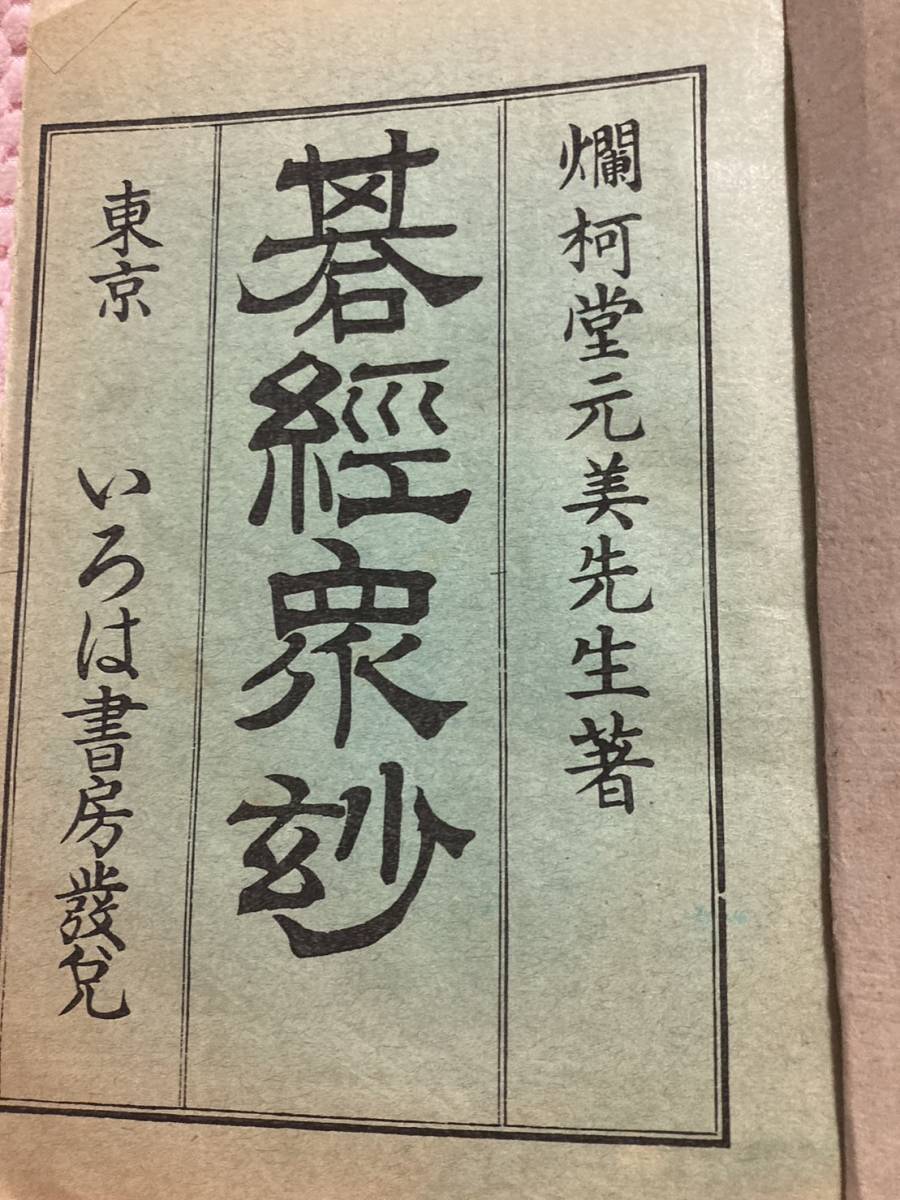 爛柯堂元美先生著
碁經衆玅
東京 いろは書房發兌